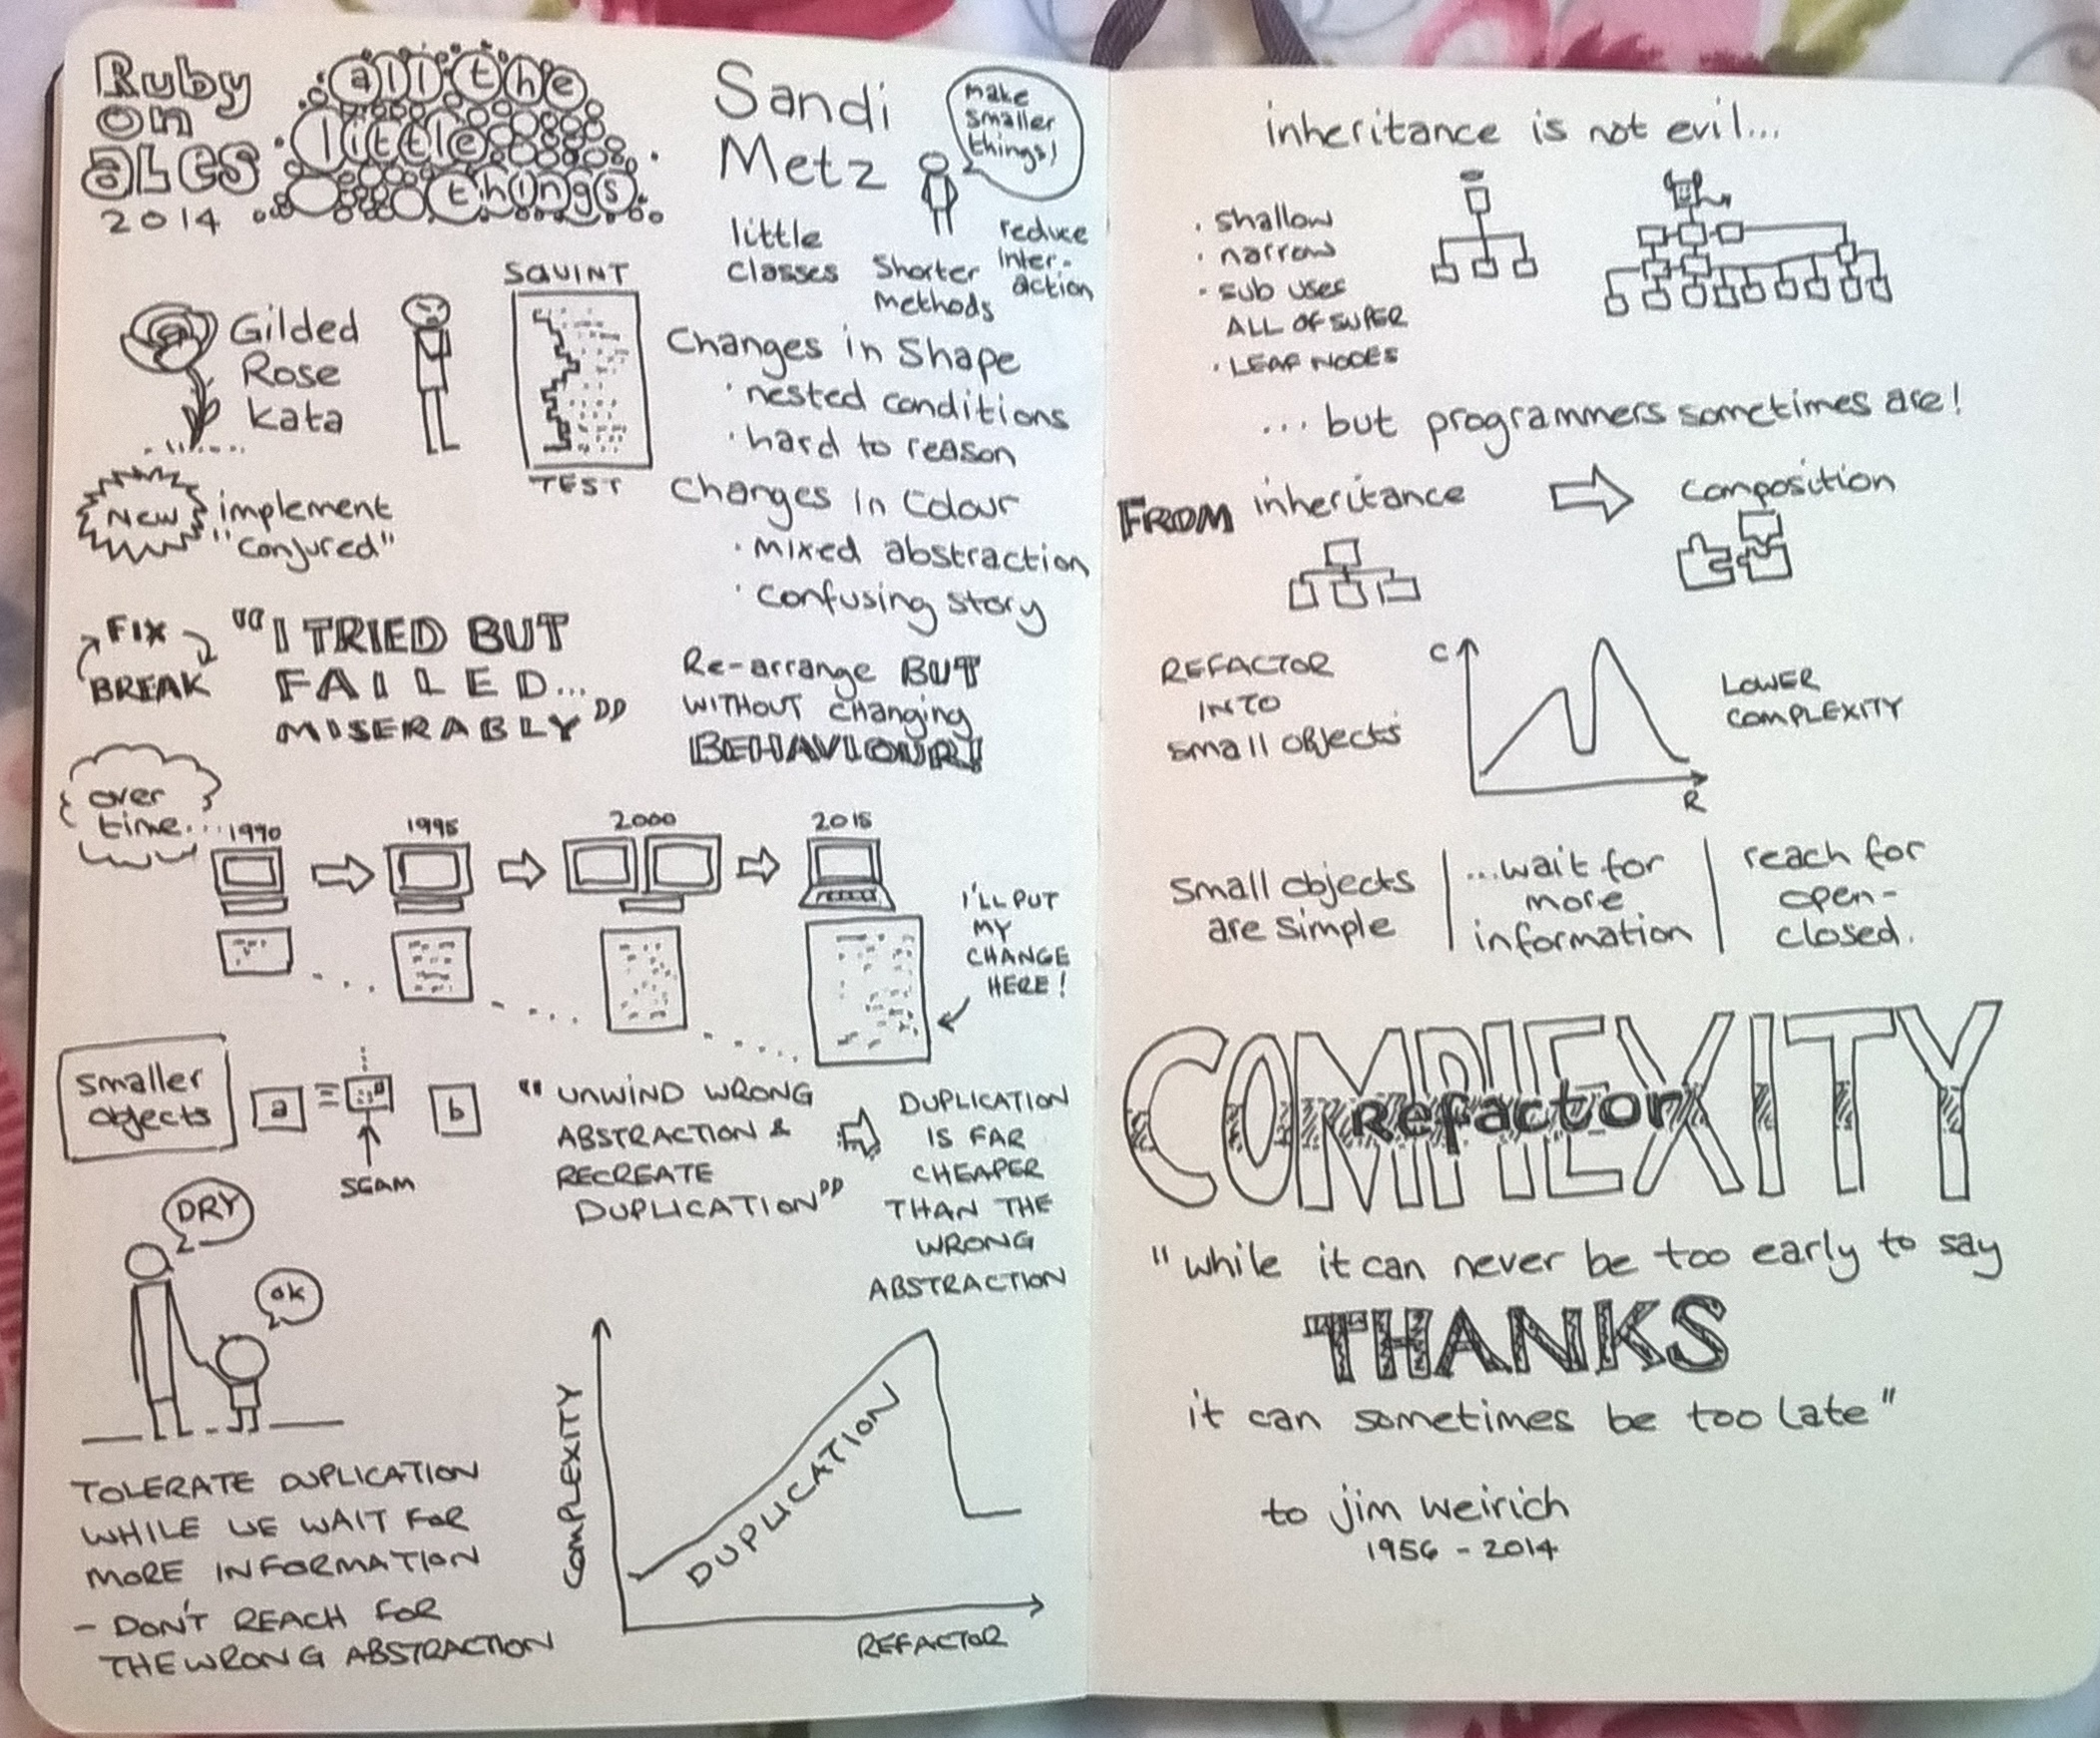 Ruby
on
ales
2014
all the
little
things
Sandi
Metz
make
smaller
things!
little
classes
Shorter
methods
reduce
inter-
action
Gilded
Rose
Kata
SQUINT
TEST
Changes in Shape
· nested conditions
· hard to reason
Changes in Colour
· mixed abstraction
· confusing story
NEW
implement
"conjured"
FIX
BREAK
"I TRIED BUT
FAILED...
MISERABLY"
Re-arrange BUT
WITHOUT changing
BEHAVIOUR!
over
time...
1990
1995
2000
2015
I'LL PUT
MY
CHANGE
HERE!
smaller
objects
a
b
SEAM
"UNWIND WRONG
ABSTRACTION &
RECREATE
DUPLICATION"
DUPLICATION
IS FAR
CHEAPER
THAN THE
WRONG
ABSTRACTION
DRY
ok
TOLERATE DUPLICATION
WHILE WE WAIT FOR
MORE INFORMATION
- DON'T REACH FOR
THE WRONG ABSTRACTION
COMPLEXITY
DUPLICATION
REFACTOR
inheritance is not evil...
· shallow
· narrow
· sub uses
ALL OF SUPER
· LEAF NODES
... but programmers sometimes are!
FROM inheritance
composition
REFACTOR
INTO
small objects
C
R
LOWER
COMPLEXITY
small objects
are simple
...wait for
more
information
reach for
open-
closed.
COMPLEXITY
Refactor
"while it can never be too early to say
THANKS
it can sometimes be too late"
to jim weirich
1956 - 2014